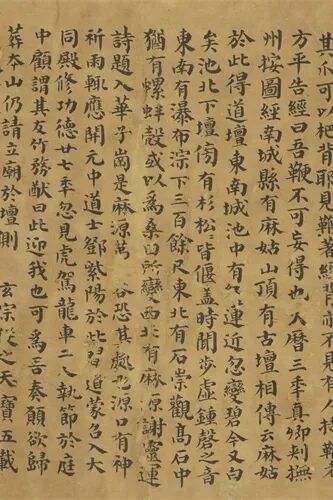 其爪可以杷背耶見鞭著經背亦不見有人持鞭
方平告經曰吾鞭不可妄得也大曆三秊真卿刺撫
州按圖經南城縣有麻姑山頂有古壇相傳云麻姑
於此得道壇東南城池中有蓮近忽變碧今又白
矣池北下壇傍有杉松皆偃蓋時聞步虛鍾磬之音
東南有瀑布淙下三百餘尺東北有石崇觀高石中
猶有螺蚌殼或以為桑田所變西北有麻源謝靈運
詩題入華子崗是麻源谷恐其處也源口有神
祈雨輒應開元中道士鄧紫陽於此習道蒙召入大
同殿修功德廿七秊忽見虎駕龍車二人執節於庭
中顧謂其友竹務猷曰此迎我也可為吾奏願欲歸
葬本山仍請立廟於壇側 玄宗從之天寶五載